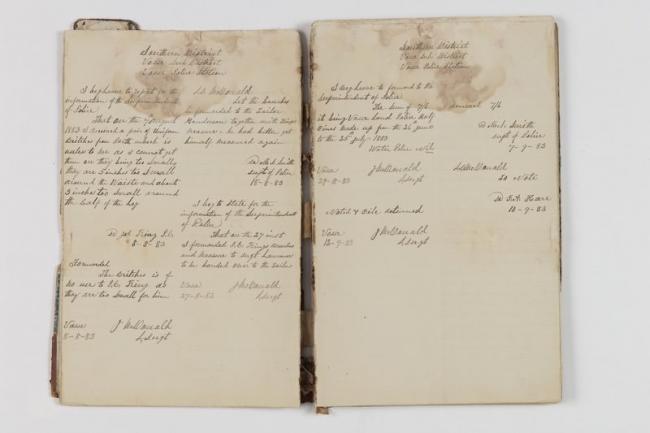 Southern District
Vasse Sub District
Vasse Police Station
I beg leave to report for the
information of the Superintendent
of Police
That on the 7 August
1883 I received a pair of Uniform
Britches from Perth which is
useless to me as I cannot get
them on they being too Small
they are 5 inches too Small
around the Waist and about
3 inches too Small around
the Calf of the leg
P.C.
8-8-83
Forwarded
The Britches is of
no use to P.C. as
they are too Small for him
Vasse J McDonald
8-8-83 L Sergt
McDonald
Let the breeches
be forwarded to the Tailor
Henderson together with
measure - he had better get
himself measured again
Smith
Supt of Police
15-8-83
I beg to State for the
information of the Superintendent
of Police
That on the 27 inst
I forwarded P.C. breeches
and measure to Sergt
to be handed over to the Tailor
Vasse J McDonald
27-8-83 L Sergt
Southern District
Vasse Sub District
Vasse Police Station
I beg leave to forward to the
Superintendent of Police
The Sum of 7/6
it being Vasse Land Police
Fines made up from the 26 June
to the 25 July 1883
Water Police Nil
Vasse J McDonald
29-8-83 L Sergt
7/6
Smith
Supt of Police
7-9-83
McDonald
to Note
10-9-83
Noted & file returned
Vasse J McDonald
12-9-83 L Sergt